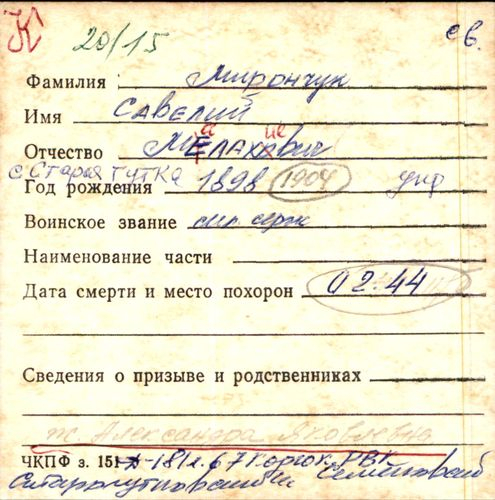 К 20/15 св.
Фамилия Мирончук
Имя САВЕЛИЙ
Отчество МАЛАХиевич
с. Старая гутка
Год рождения 1898 (1904) укр
Воинское звание мл. серж
Наименование части
Дата смерти и место похорон 02.44
Сведения о призыве и родственниках
ж Александра Яковлевна
ЧКПФ з. 151